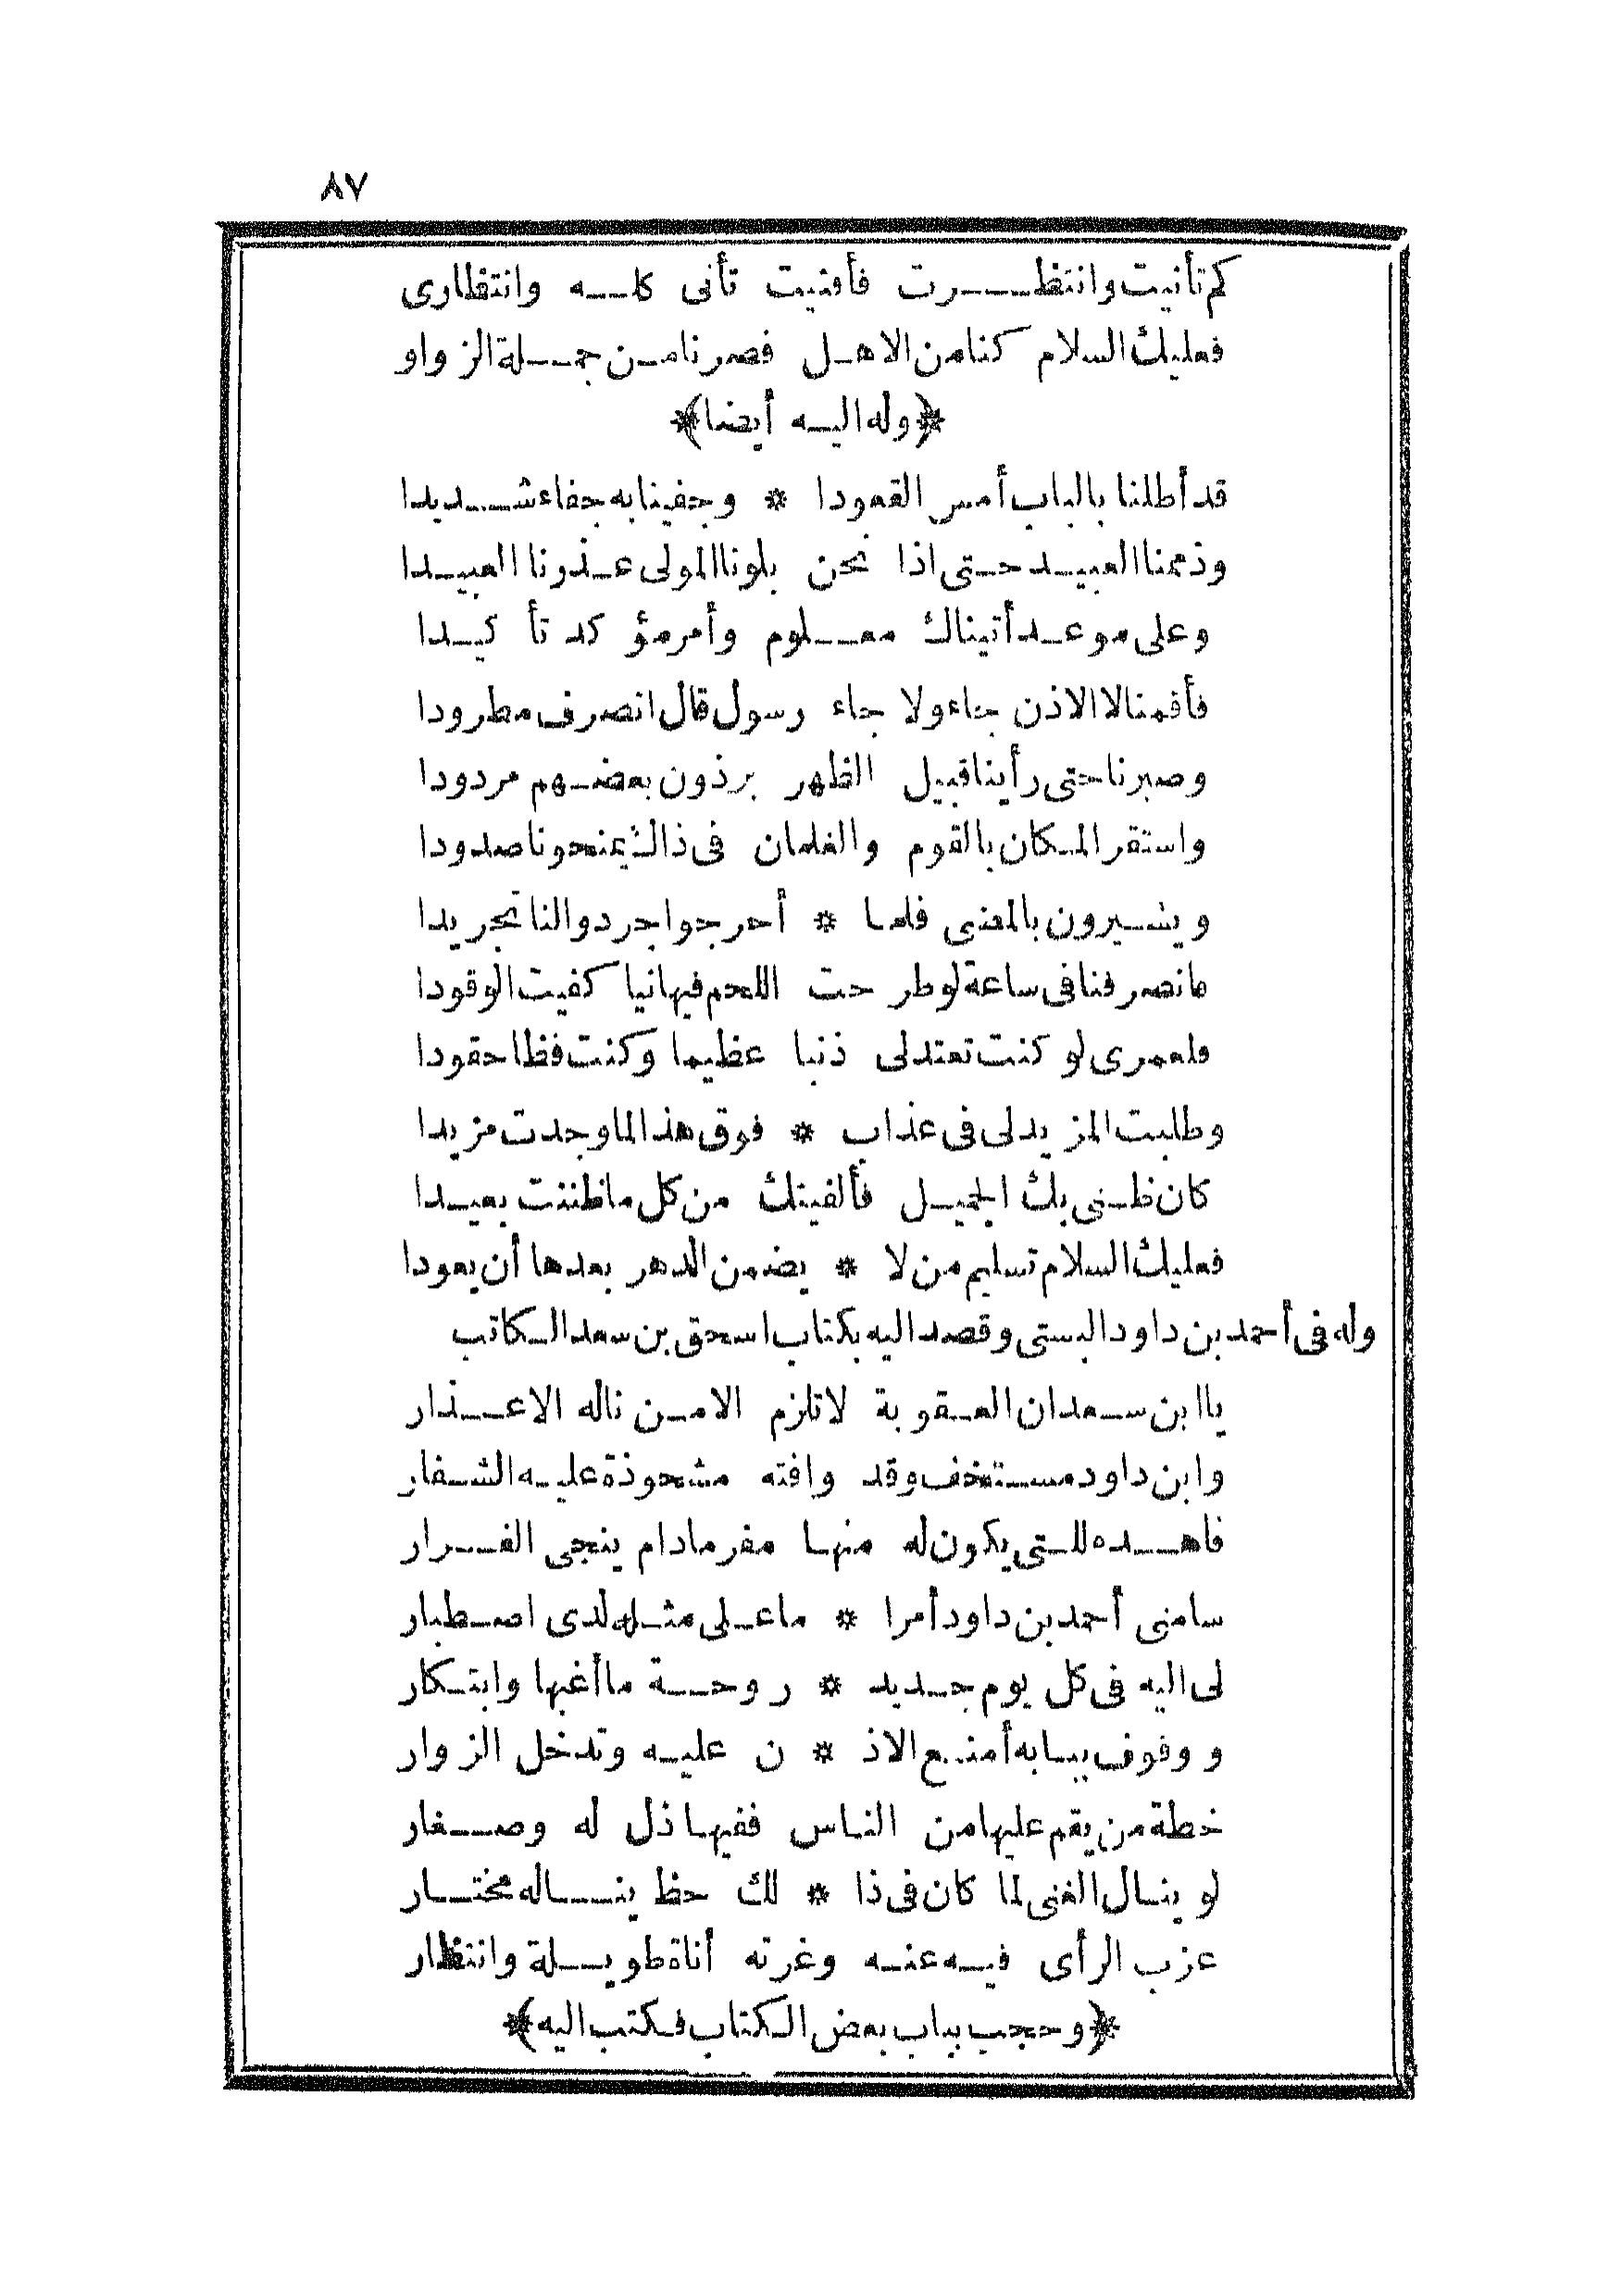 ٨٧
كم تأنيت وانتظرت فأفنيت تأنى كله وانتظارى
فعليك السلام كنا من الاهل فصرنا من جملة الزواو
﴿وله اليه أيضا﴾
قد أطلنا بالباب أمس القعودا * وجفينا به جفاء شديدا
وذممنا العبيد حتى اذا نحن بلونا المولى عذرنا العبيدا
وعلى موعد أتيناك معلوم وأمر مؤكد تأكيدا
فأقمنا لا الاذن جاء ولا جاء رسول قال انصرف مطرودا
وصبرنا حتى رأينا قبيل الظهر برذون بعضهم مردودا
واستقر المكان بالقوم والغلمان فى ذاك يمنحونا صدودا
ويشيرون بالمضى فلما * أحرجوا جردوا لنا تجريدا
ما نصرفنا فى ساعة لو طرحت اللحم فيها نيا كفيت الوقودا
فلعمرى لو كنت تعتد لى ذنبا عظيما وكنت فظا حقودا
وطلبت المزيد لى فى عذاب * فوق هذا لما وجدت مزيدا
كان ظنى بك الجميل فألفيتك من كل ما ظننت بعيدا
فعليك السلام تسليم من لا * يضمن الدهر بعدها أن يعودا
وله فى أحمد بن داود البستى وقصد اليه بكتاب اسحق بن سعد الكاتب
يا ابن سعد ان العقوبة لا تلزم الا من ناله الاعذار
وابن داود مستخف وقد وافته مشحوذة عليه الشفار
فاهده للتى يكون له منها مفر ما دام ينجى الفرار
سامنى أحمد بن داود أمرا * ما على مثله لدى اصطبار
لى اليه فى كل يوم جديد * روحة ما أغبها وابتكار
ووقوف ببابه أمنع الاذ * ن عليه وتدخل الزوار
خطة من يقم عليها من الناس ففيها ذل له وصغار
لو ينال الغنى لما كان فى ذا * لك حظ يناله مختار
عزب الرأى فيه عنه وغرته أناة طويلة وانتظار
﴿وحجب بباب بعض الكتاب فكتب اليه﴾